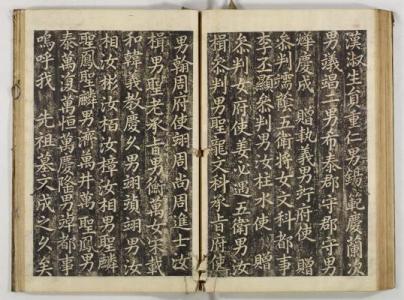 漢淑生貟重仁男錫範慶蘭次
男議謁二男布泰郡守郡守男
燁慶成 贈執義男𤣰府使 贈
叅判瀋蔭五衛將女文科都事
李丕顯叅判男汝柱水使 贈
叅判女府使姜必遇五衛男汝
楫叅判男聖龍文科承㫖府使
男翰周府使翊周尚周進士汝
楫男聖老承㫖男僩萬女宋載
和韓義敎慶久男翊禎翊男汝
相汝彬汝栢汝樟汝相男聖麟
聖鳳聖麟男濟萬井萬聖鳳男
泰萬復萬恒萬慶蔭男㷟都事
嗚呼我 先祖墓文成之久矣